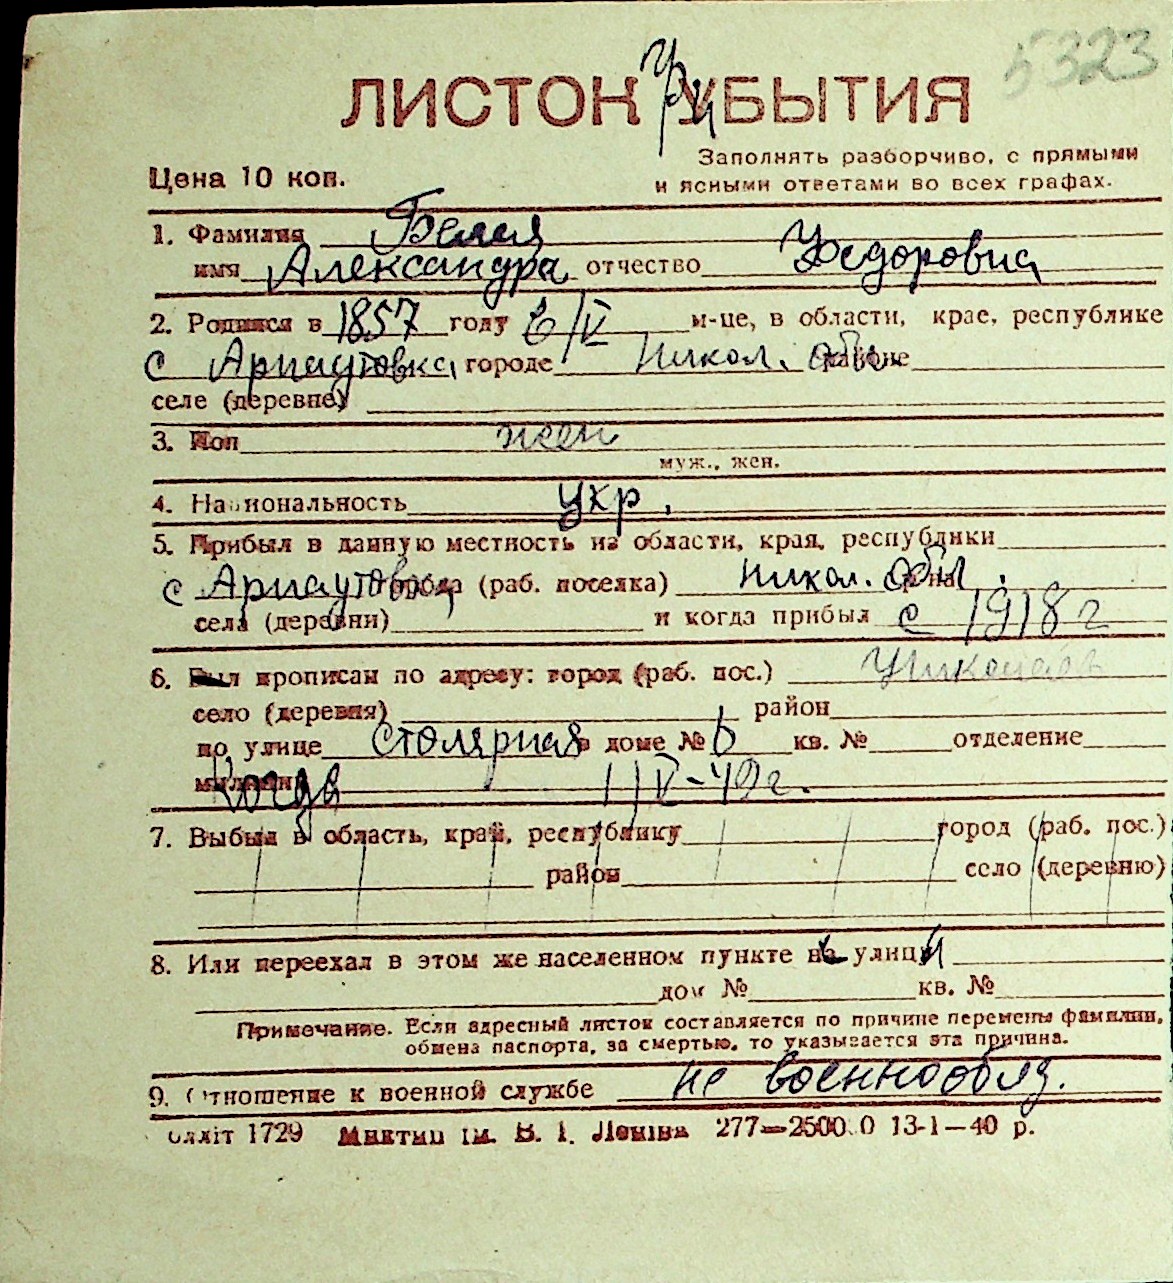 5323
ЛИСТОК УБЫТИЯ
При
Цена 10 коп.
Заполнять разборчиво, с прямыми
и ясными ответами во всех графах.
1. Фамилия Белая
имя Александра отчество Федоровна
2. Родился в 1857 году 6/V м-це, в области, крае, республике
с Арнаутовка городе Никол. обл. районе
селе (деревне)
3. Пол жен
муж., жен.
4. Национальность укр.
5. Прибыл в данную местность из области, края, республики
с Арнаутовка города (раб. поселка) Никол. обл.
села (деревни) и когда прибыл с 1918 г
6. Был прописан по адресу: город (раб. пос.) Николаев
село (деревня) район
по улице Столярная в доме № 6 кв. № отделение
милиции Когда 1/V-49 г.
7. Выбыл в область, край, республику город (раб. пос.)
район село (деревню)
8. Или переехал в этом же населенном пункте на улицу
дом № кв. №
Примечание. Если адресный листок составляется по причине перемены фамилии,
обмена паспорта, за смертью, то указывается эта причина.
9. Отношение к военной службе не военнообяз.
оллiт 1729 iм. В. I. Ленiна 277—2500.0 13-1—40 р.